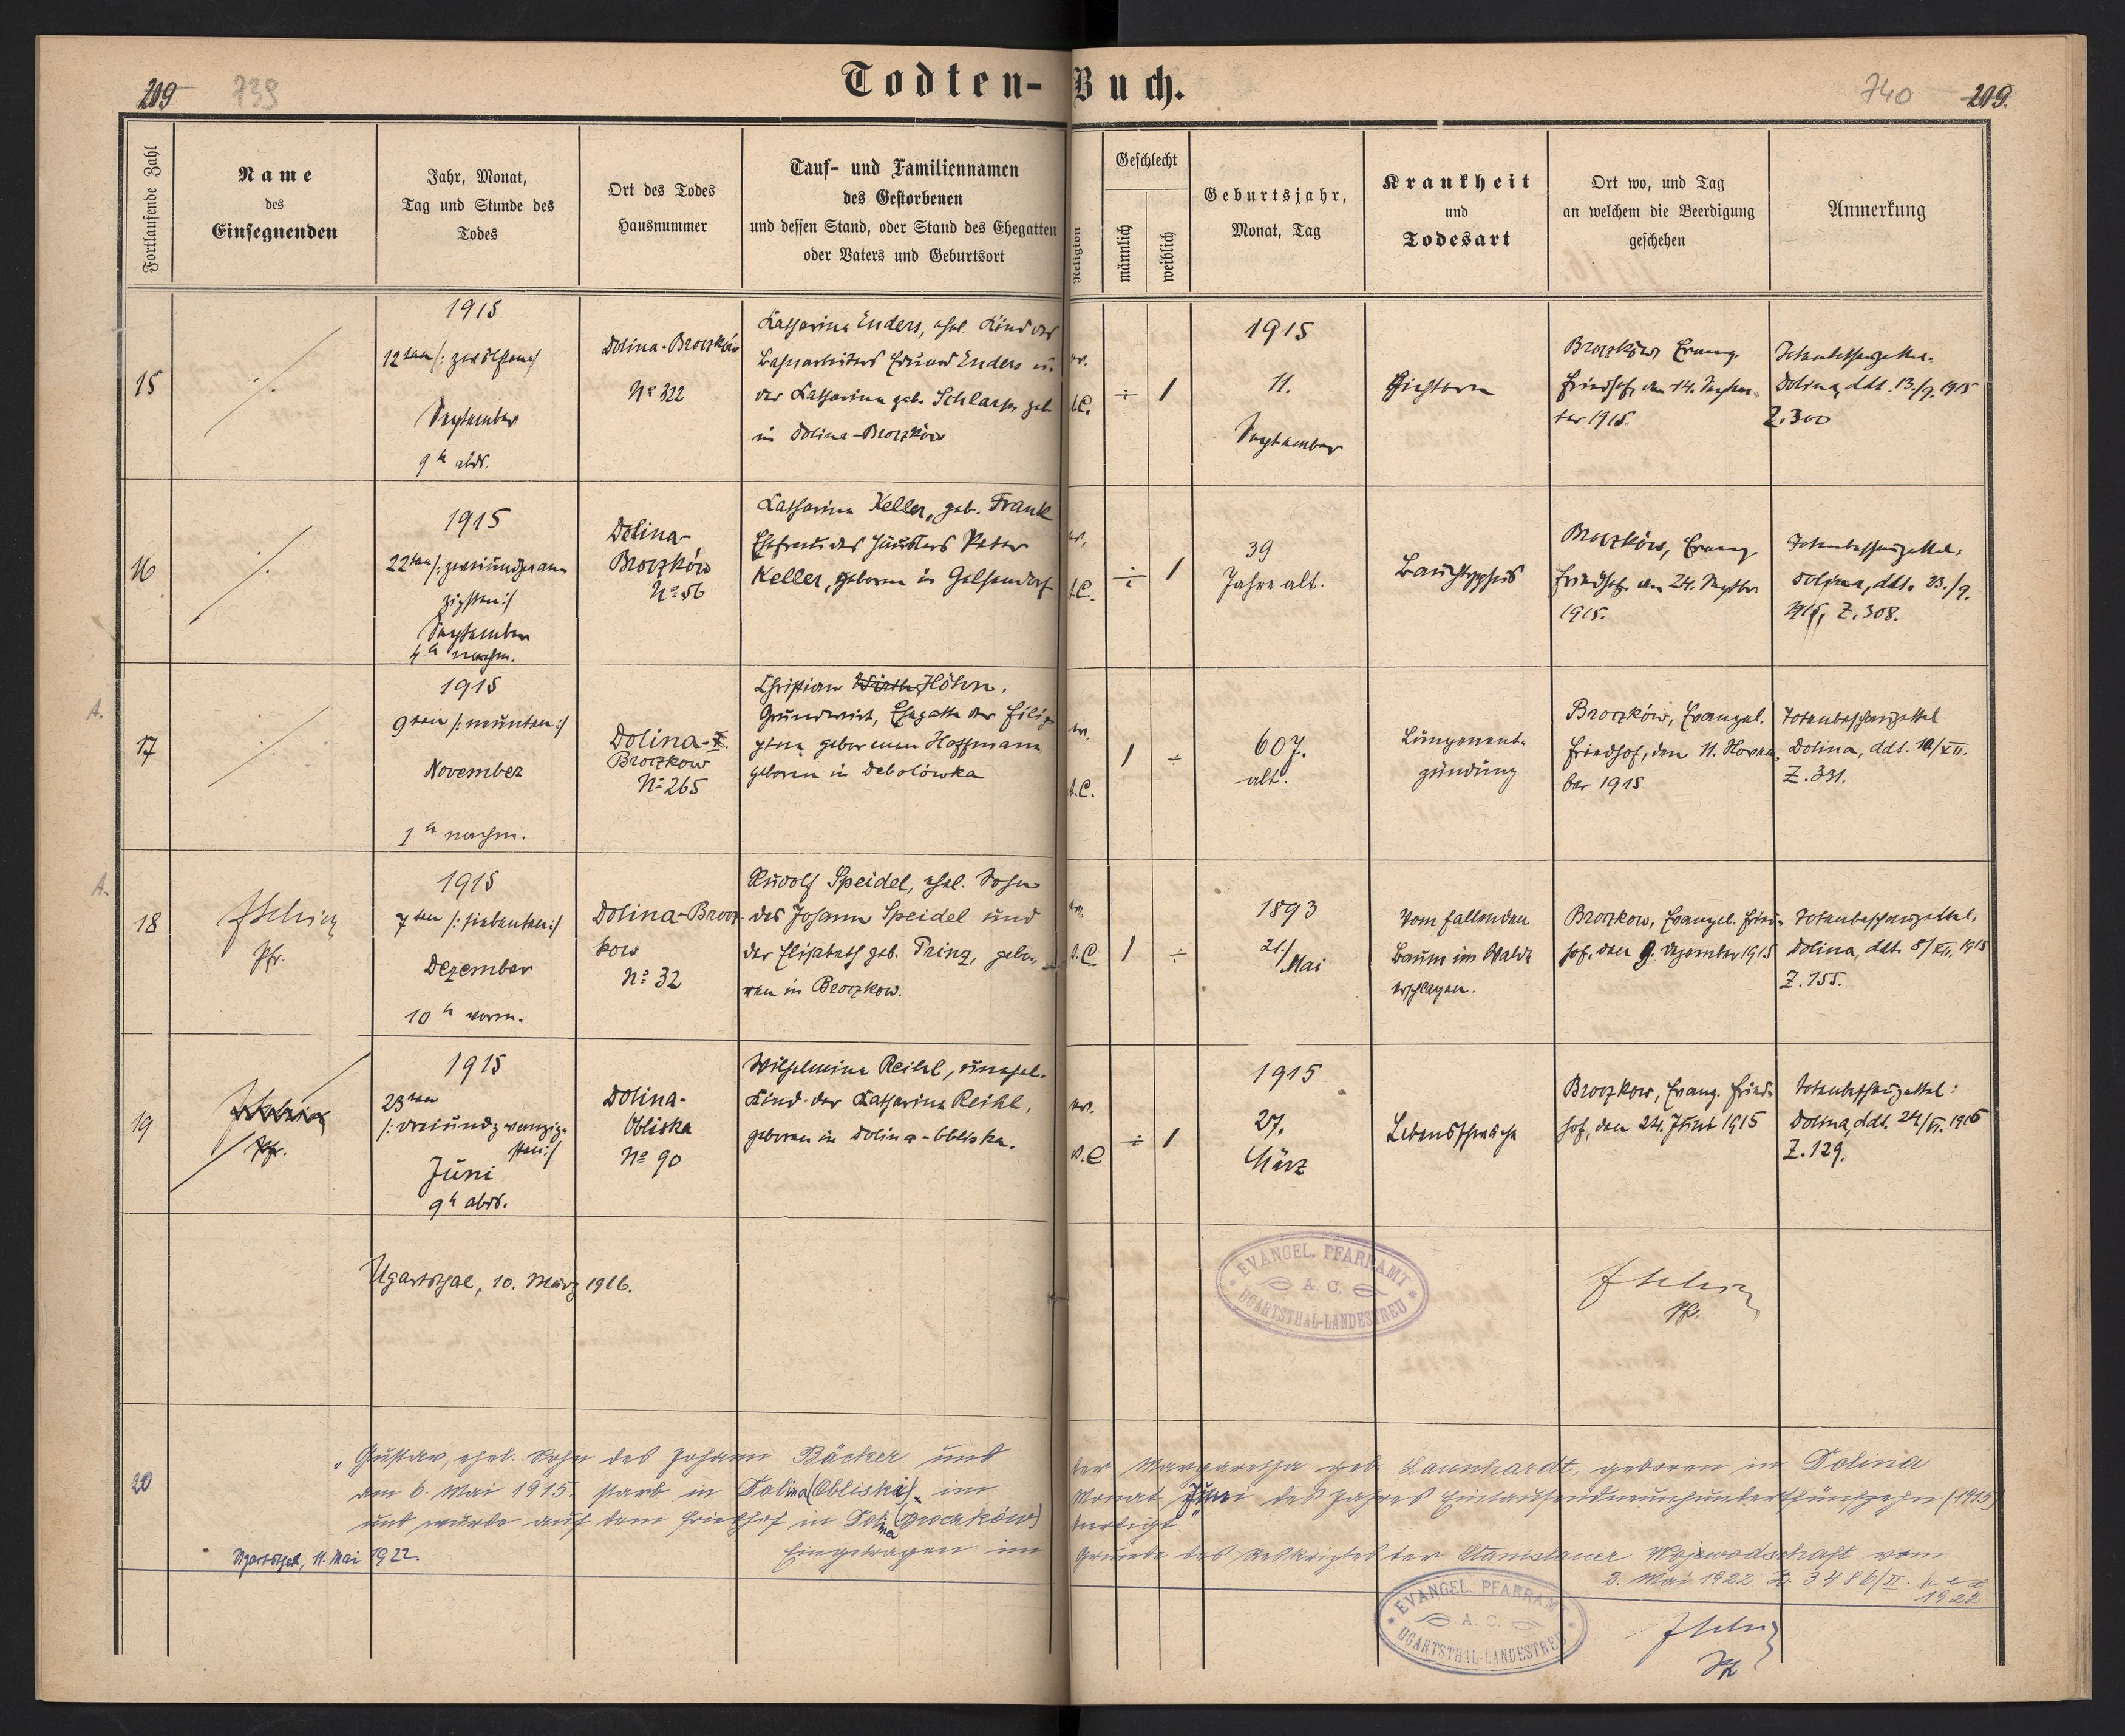 Todten-Buch.
209 739
740 209.
Fortlaufende Zahl
Name
des
Einsegnenden
Jahr, Monat,
Tag und Stunde des
Todes
Ort des Todes
Hausnummer
Tauf- und Familiennamen
des Gestorbenen
und dessen Stand, oder Stand des Ehegatten
oder Vaters und Geburtsort
Religion
Geschlecht
männlich
weiblich
Geburtsjahr,
Monat, Tag
Krankheit
und
Todesart
Ort wo, und Tag
an welchem die Beerdigung
geschehen
Anmerkung
15
1915
12ten /: zwölften :/
September
9 h abds.
Dolina-Broczków
No 322
Katharina Enders, ehel. Kind des
Bahnarbeiters Eduard Enders u.
der Katharina geb. Schlarp, geb.
in Dolina-Broczków
ev.
A.C.
÷ 1
1915
11.
September
Broczków, Evang.
Friedhof, den 14. Septem-
ber 1915.
Totenbeschauzettel.
Dolina, ddt. 13./9. 1915
Z. 300
16
1915
22ten /: zweiundzwan
zigsten :/
September
4 h nachm.
Dolina-
Broczków
No 56
Katharina Keller, geb. Frank
Ehefrau des Häuslers Peter
Keller, geboren in Gelsendorf
ev.
A.C.
÷ 1
39
Jahre alt.
Bauchtyphus
Broczków, Evang.
Friedhof, den 24. Septber
1915.
Totenbeschauzettel,
Dolina, ddt. 23./9.
1915, Z. 308.
A.
17
1915
9ten /: neunten :/
November
1 h nachm.
Dolina-
Broczkow
No 265
Christian Wirth Höhn,
Grundwirt, Ehegatte der
geborenen Hoffmann
geboren in Debolówka
ev.
A.C.
1 ÷
60 J.
alt.
Lungenent-
zündung
Broczków, Evangel.
Friedhof, den 11. Novem-
ber 1915
Totenbeschauzettel
Dolina, ddt. 10/XII.
Z. 331.
A.
18
Pfr.
1915
7ten /: siebenten :/
Dezember
10 h vorm.
Dolina-Brocz-
kow
No 32
Rudolf Speidel, ehel. Sohn
des Johann Speidel und
der Elisabeth geb. Prinz, gebo-
ren in Broczkow.
ev.
A.C.
1 ÷
1893
21./
Mai
Vom fallenden
Baum im Walde
erschlagen.
Broczkow, Evangel. Fried-
hof, den 9. Dezember 1915
Totenbeschauzettel,
Dolina, ddt. 8/XII. 1915
Z. 155.
19
Pfr.
1915
23ten
/: dreiundzwanzig-
sten :/
Juni
9 h abds.
Dolina-
Obliska
No 90
Wilhelmine Reihl, unehel.
Kind der Katharina Reihl,
geboren in Dolina-Obliska.
ev.
A.C.
÷ 1
1915
27.
März
Lebensschwäche
Broczkow, Evang. Fried-
hof, den 24. Juni 1915
Totenbeschauzettel:
Dolina, ddt. 24/VI. 1915
Z. 129.
Ugartsthal, 10. März 1916.
EVANGEL. PFARRAMT
A. C.
UGARTSTHAL-LANDESTREU
Pfr.
20
Gustav, ehel. Sohn des Johann Bäcker und der Margaretha geb. Launhardt, geboren in Dolina
am 6. Mai 1915 starb in Dolina (Obliska) im Monat Juni des Jahres Eintausendneunhundertfünfzehn (1915)
und wurde auf dem Friedhof in Dolina (Broczków) beerdigt.
Ugartsthal, 11. Mai 1922.
Eingetragen im Grunde des Reskriptes der Stanislauer Wojewodschaft vom
2. Mai 1922 Z. 3486/II.
1922
EVANGEL. PFARRAMT
A. C.
UGARTSTHAL-LANDESTREU